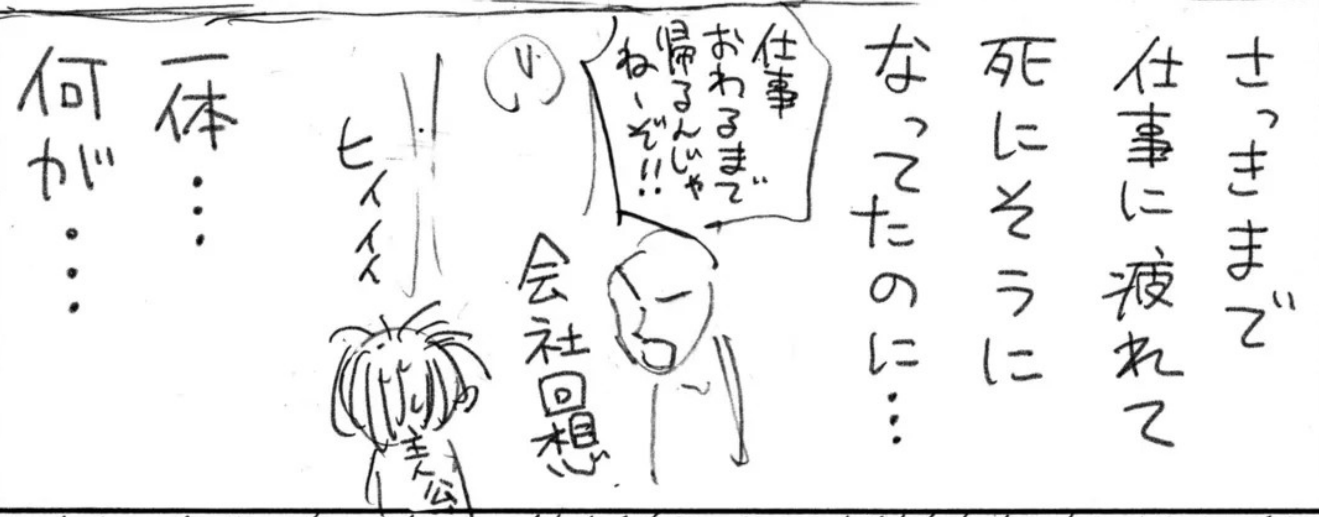 さっきまで
仕事に疲れて
死にそうに
なってたのに…
仕事
おわるまで
帰るんじゃ
ねーぞ!!
会社回想
ヒィィィ
主人公
一体…
何が…